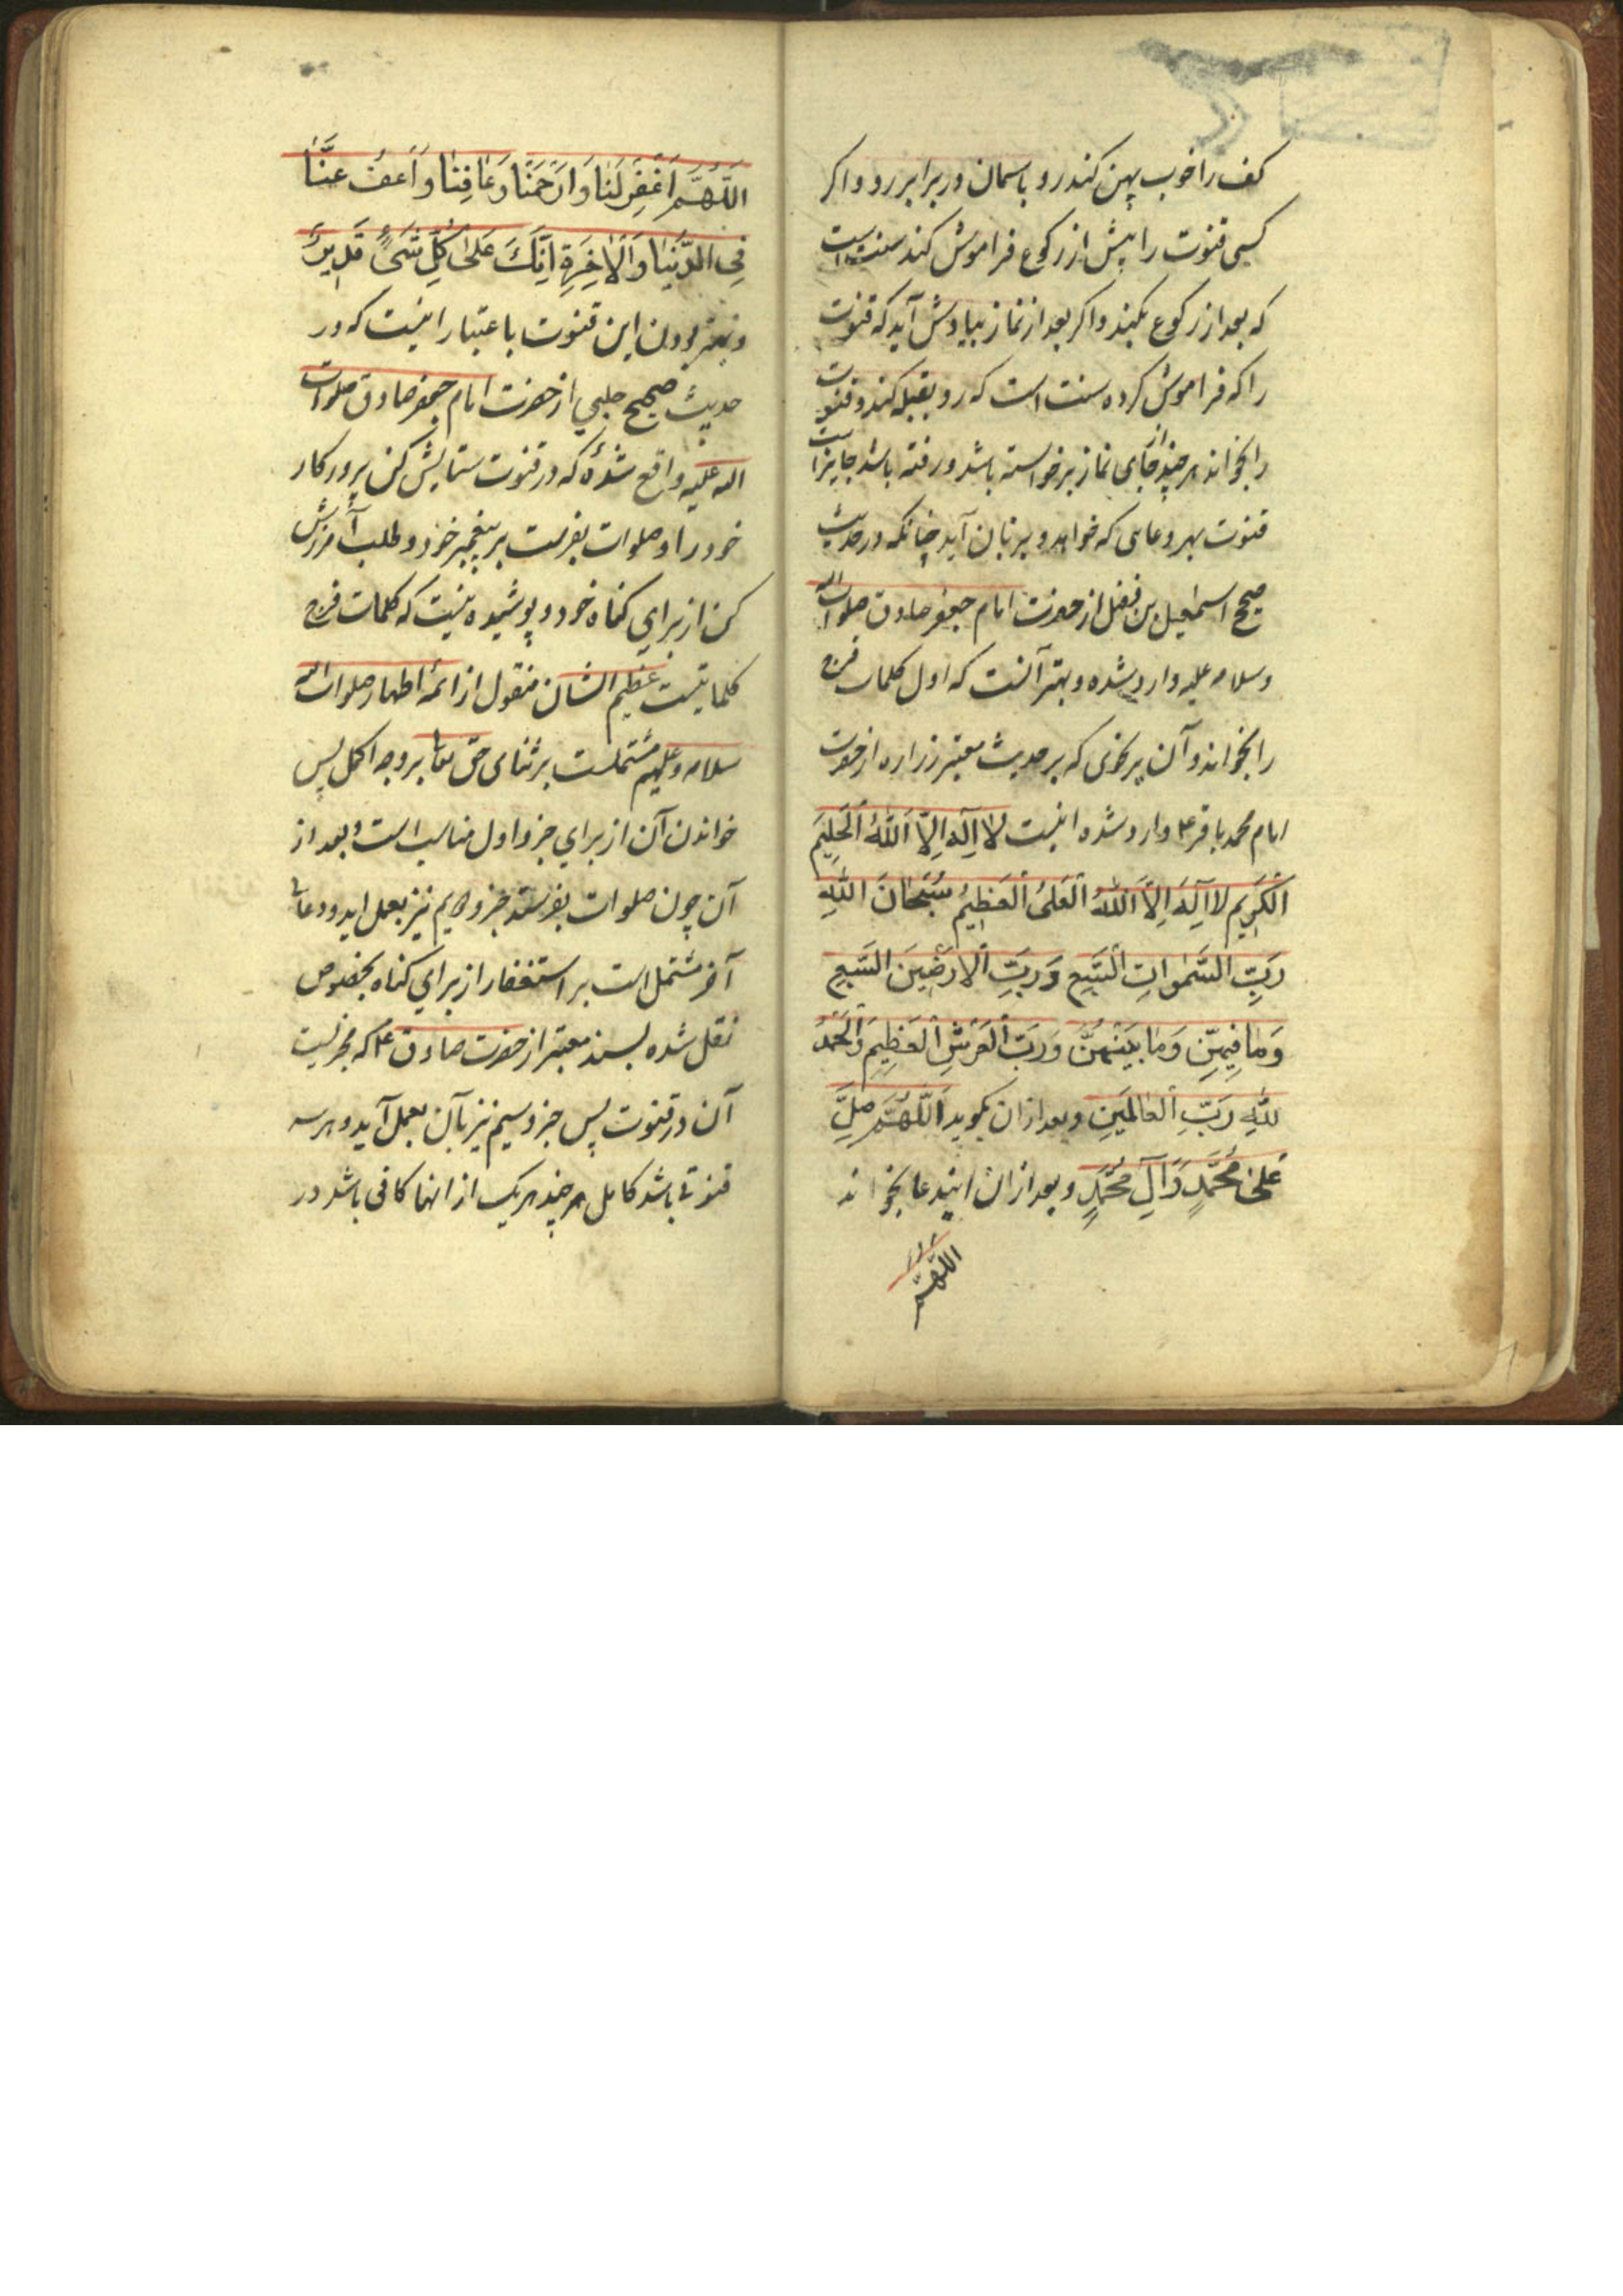 کف را خوب پهن کند رو باسمان در برابر رو و اکر
کسی قنوت را پیش از رکوع فراموش کند سنت است
که بعد از رکوع بکند و اکر بعد از نماز بیادش آید که قنوت
را که فراموش کرده سنت است که رو بقبله کند و قنوت
را بخواند هر چند از جای نماز برخواسته باشد و رفته باشد جایز است
قنوت بهر دعایی که خواهد و بر زبان آید چنانکه در حدیث
صحیح اسمعیل بن فضل از حضرت امام جعفر صادق صلوات الله
و سلامه علیه وارد شده و بهتر آنست که اول کلمات فرج
را بخواند و آن بر نحوی که بر حدیث معتبر زراره از حضرت
امام محمد باقر ع وارد شده اینست لَا اِلٰهَ اِلَّا اللّٰهُ الْحَلِیمُ
الْکَرِیمُ لَا اِلٰهَ اِلَّا اللّٰهُ الْعَلِیُّ الْعَظِیمُ سُبْحَانَ اللّٰهِ
رَبِّ السَّمٰوَاتِ السَّبْعِ وَرَبِّ الْاَرَضِینَ السَّبْعِ
وَمَا فِیهِنَّ وَمَا بَیْنَهُنَّ وَرَبِّ الْعَرْشِ الْعَظِیمِ وَالْحَمْدُ
لِلّٰهِ رَبِّ الْعَالَمِینَ و بعد ازان بکوید اَللّٰهُمَّ صَلِّ
عَلیٰ مُحَمَّدٍ وَآلِ مُحَمَّدٍ و بعد ازان ایندعا بخواند
اللّٰهُمَّ
اَللّٰهُمَّ اغْفِرْ لَنَا وَارْحَمْنَا وَعَافِنَا وَاعْفُ عَنَّا
فِی الدُّنْیَا وَالْاٰخِرَةِ اِنَّكَ عَلیٰ کُلِّ شَیْءٍ قَدِیرٌ
و بهتر بودن این قنوت باعتبار اینست که در
حدیث صحیح حلبی از حضرت امام جعفر صادق صلوات
الله علیه واقع شده که در قنوت ستایش کن پرورکار
خود را و صلوات بفرست بر پیغمبر خود و طلب آمرزش
کن از برای کناه خود و پوشیده نیست که کلمات فرج
کلماتیست عظیم الشان منقول از ائمه اطهار صلوات الله
سلامه و علیهم مشتملست بر ثنای حق تعا بر وجه اکمل پس
خواندن آن از برای جزو اول مناسب است و بعد از
آن چون صلوات بفرستد جزو دویم نیز بعمل اید و دعای
آخر مشتمل است بر استغفار از برای کناه بخصوص
نقل شده بسند معتبر از حضرت صادق ع که مجزیست
آن در قنوت پس جزو سیم نیز بآن بعمل آید و هر سه
قنوتی باشد کامل هر چند هر یک از انها کافی باشد در